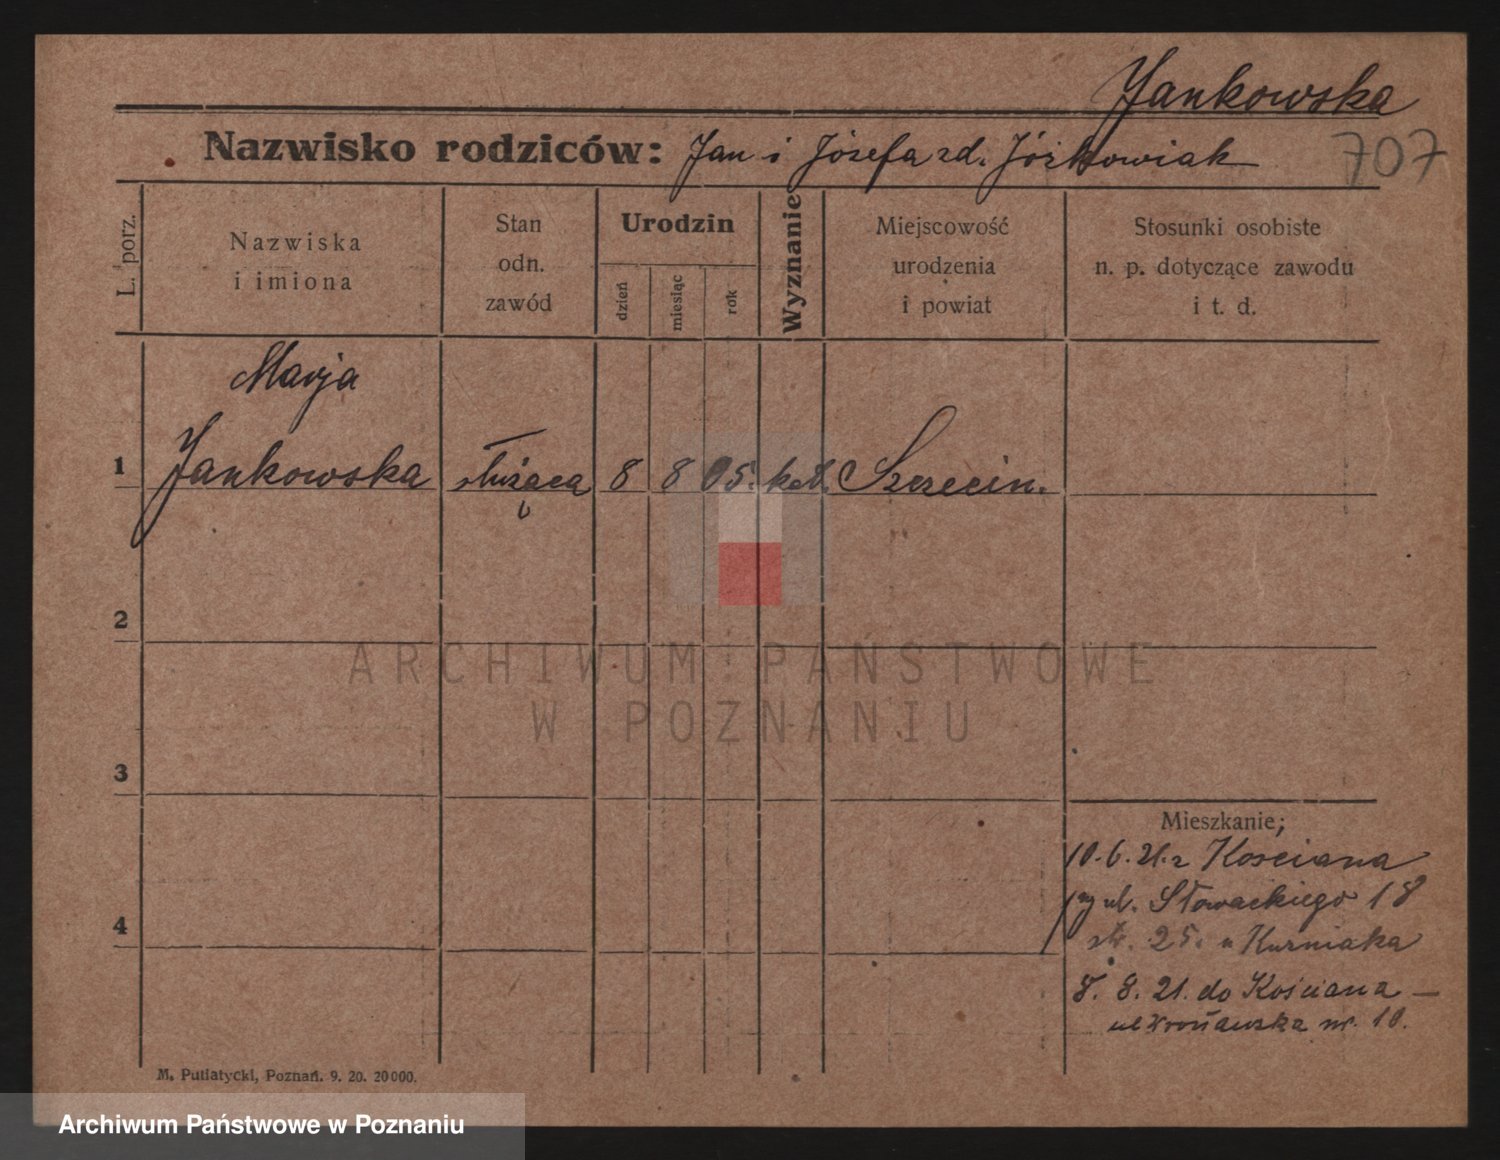 Jankowska
Nazwisko rodziców: Jan i Józefa zd. Józkowiak
707
L. porz.
Nazwiska
i imiona
Stan
odn.
zawód
Urodzin
dzień
miesiąc
rok
Wyznanie
Miejscowość
urodzenia
i powiat
Stosunki osobiste
n. p. dotyczące zawodu
i t. d.
Marja
1 Jankowska służąca 8 8 05. kat. Szczecin.
2
ARCHIWUM PAŃSTWOWE
W POZNANIU
3
Mieszkanie;
10.6.21. z Kościana
ul. Słowackiego 18
25. u Kurniaka
4
8. 8. 21. do Kościana —
nr. 10.
M. Putiatycki, Poznań. 9. 20. 20000.
Archiwum Państwowe w Poznaniu